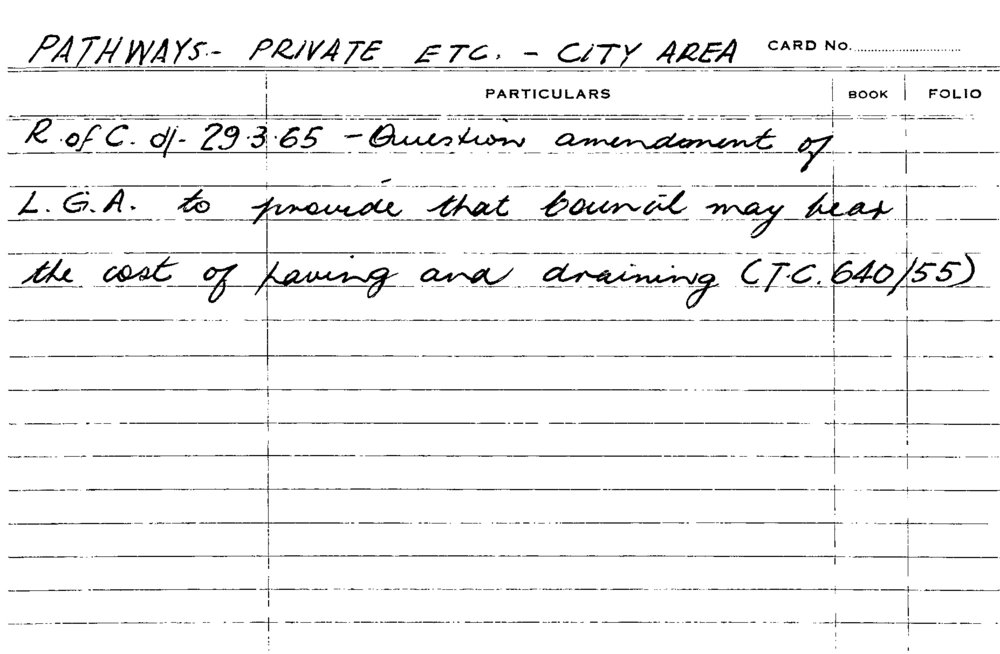 PATHWAYS.- PRIVATE ETC. - CITY AREA CARD No.
PARTICULARS BOOK FOLIO
R. of C. d/- 29.3.65 - Question amendment of
L.G.A. to provide that Council may bear
the cost of paving and draining (T.C. 640/55)